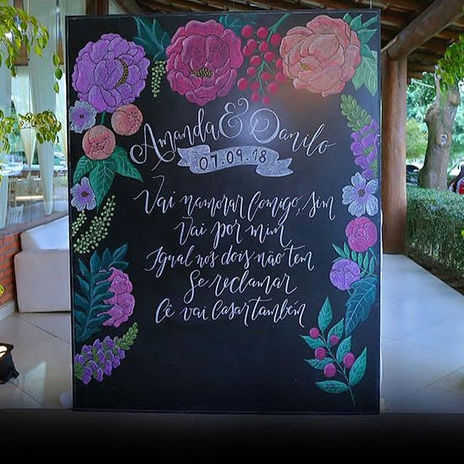 Amanda & Danilo
07.09.18
Vai namorar comigo, sim
Vai por mim
Igual nós dois não tem
Se reclamar
Cê vai casar também